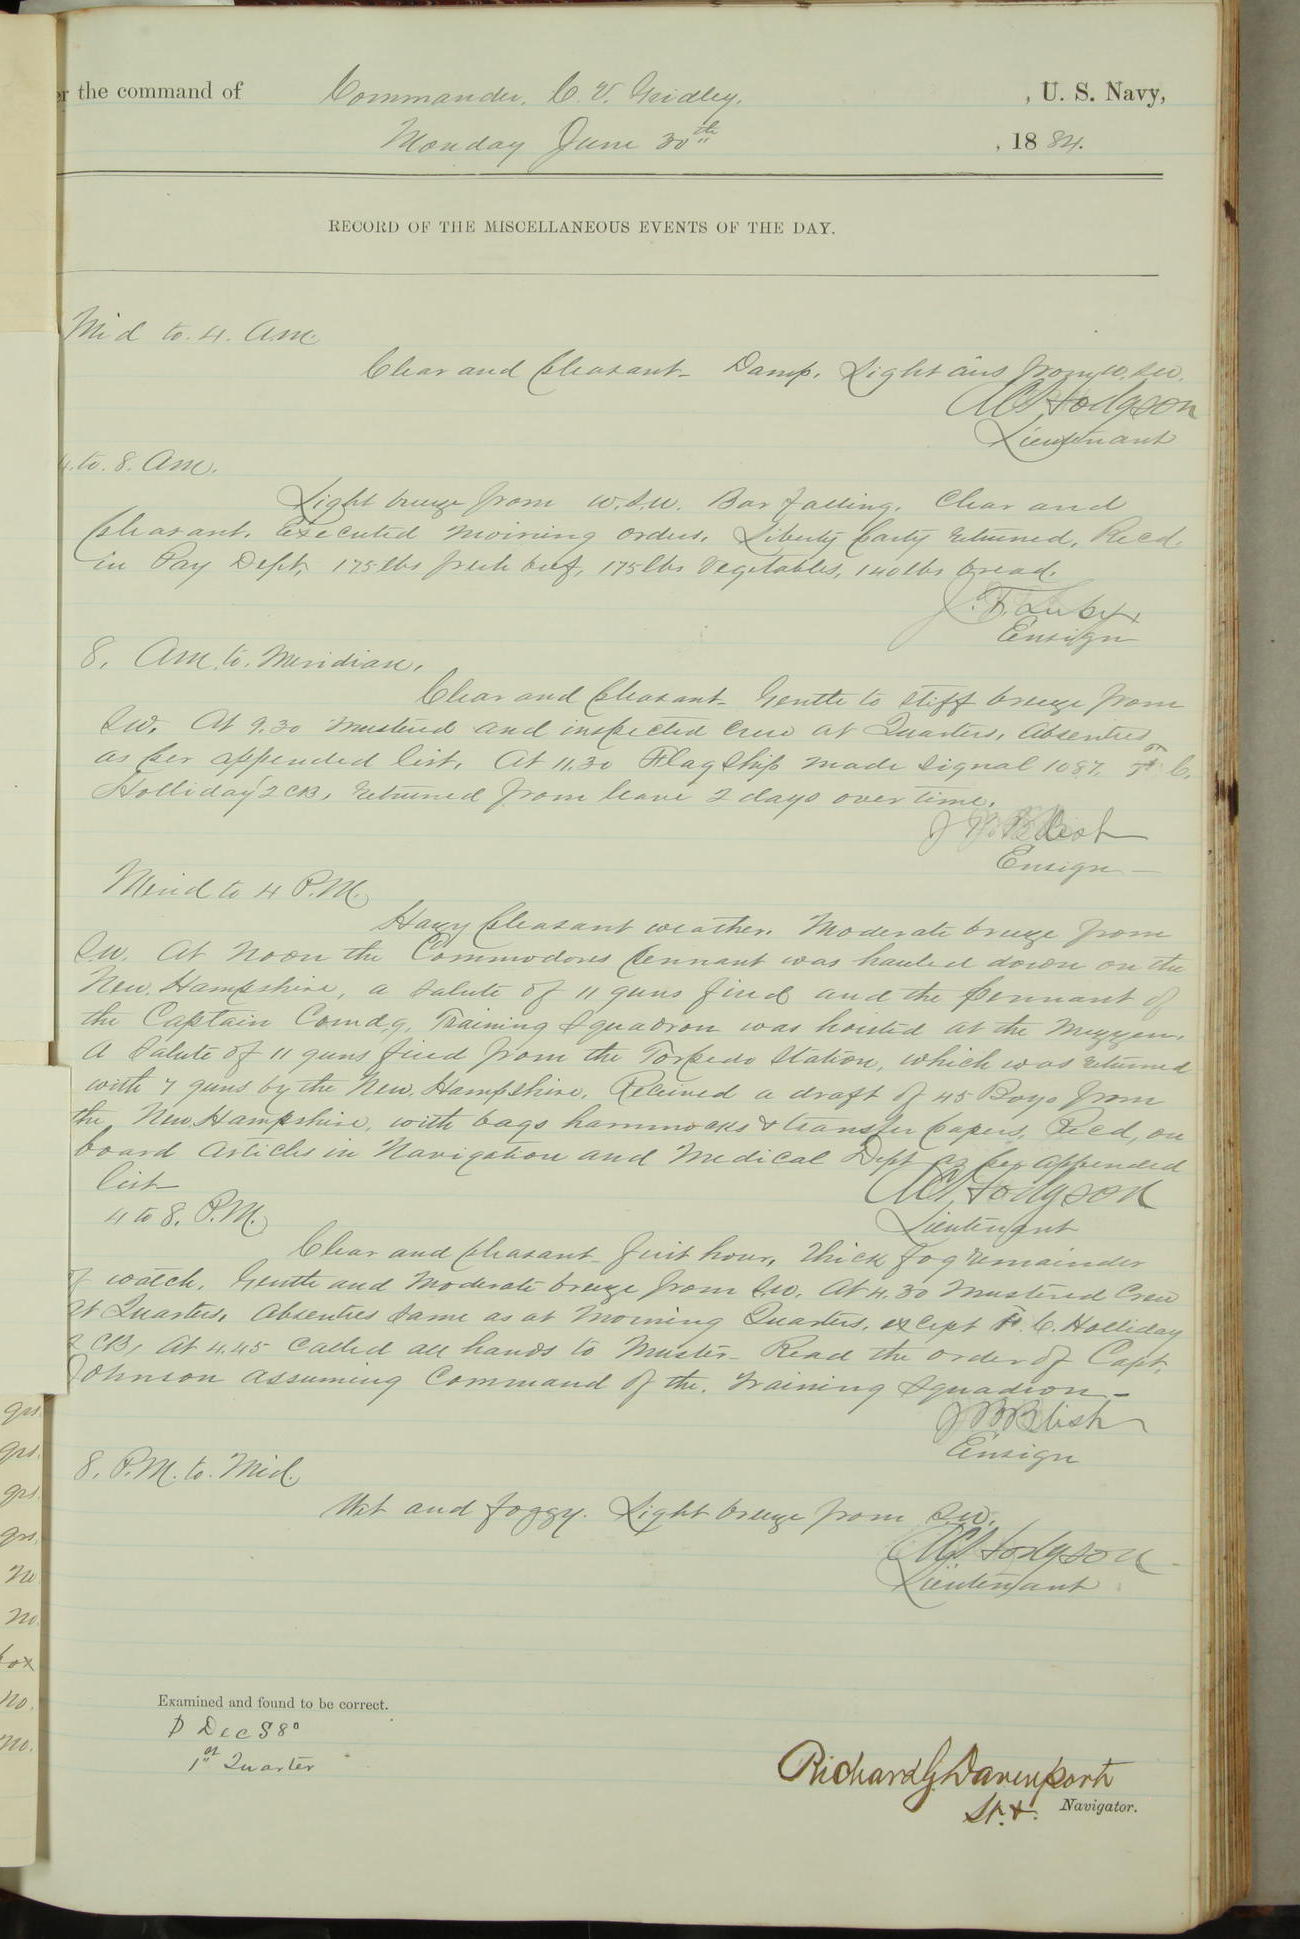 the command of Commander, C. V. Gridley. , U. S. Navy,
Monday June 30th , 1884.
RECORD OF THE MISCELLANEOUS EVENTS OF THE DAY.
Mid to. 4. A.M.
Clear and pleasant- Damp. Light airs from W.SW.
A C Hodgson
Lieutenant
4. to. 8. AM.
Light breeze from W.S.W. Bar falling. Clear and
pleasant. Executed morning orders. Liberty party returned, Recd.
in Pay Dept, 175 lbs fresh beef, 175 lbs Vegetables, 140 lbs bread.
J. F. Luby.
Ensign
8. AM. to. Meridian.
Clear and pleasant- Gentle to stiff breeze from
SW. At 9.30 mustered and inspected crew at Quarters, absentees
as per appended list. At 11.30 Flagship made signal 1087. F. C.
Holliday 2 CB, returned from leave 2 days over time.
J B Blish
Ensign
Merid to 4 P.M.
Hazy pleasant weather. Moderate breeze from
SW. At Noon the Commodores pennant was hauled down on the
New. Hampshire, a salute of 11 guns fired and the pennant of
the Captain Comd'g. Training Squadron was hoisted at the Mizzen.
A salute of 11 guns fired from the Torpedo Station, which was returned
with 7 guns by the New. Hampshire. Received a draft of 45 Boys from
the New Hampshire, with bags hammocks & transfer papers. Recd, on
board articles in Navigation and Medical Dept as per appended
list-
A C Hodgson
4 to 8. P.M.
Lieutenant
Clear and pleasant- first hour, thick fog remainder
of watch. Gentle and Moderate breeze from SW. At 4.30 Mustered Crew
at Quarters. Absentees same as at Morning Quarters. except F. C. Holliday
2 CB, At 4.45 called all hands to Muster- Read the order of Capt.
Johnson assuming Command of the. Training Squadron-
J B Blish
Ensign
8. P.M. to. Mid.
Wet and foggy. Light breeze from S.W.
A C Hodgson
Lieutenant
Examined and found to be correct.
1st Quarter
Richard G. Davenport
Navigator.
grs.
grs.
grs.
grs.
No
No.
box
No.
No.